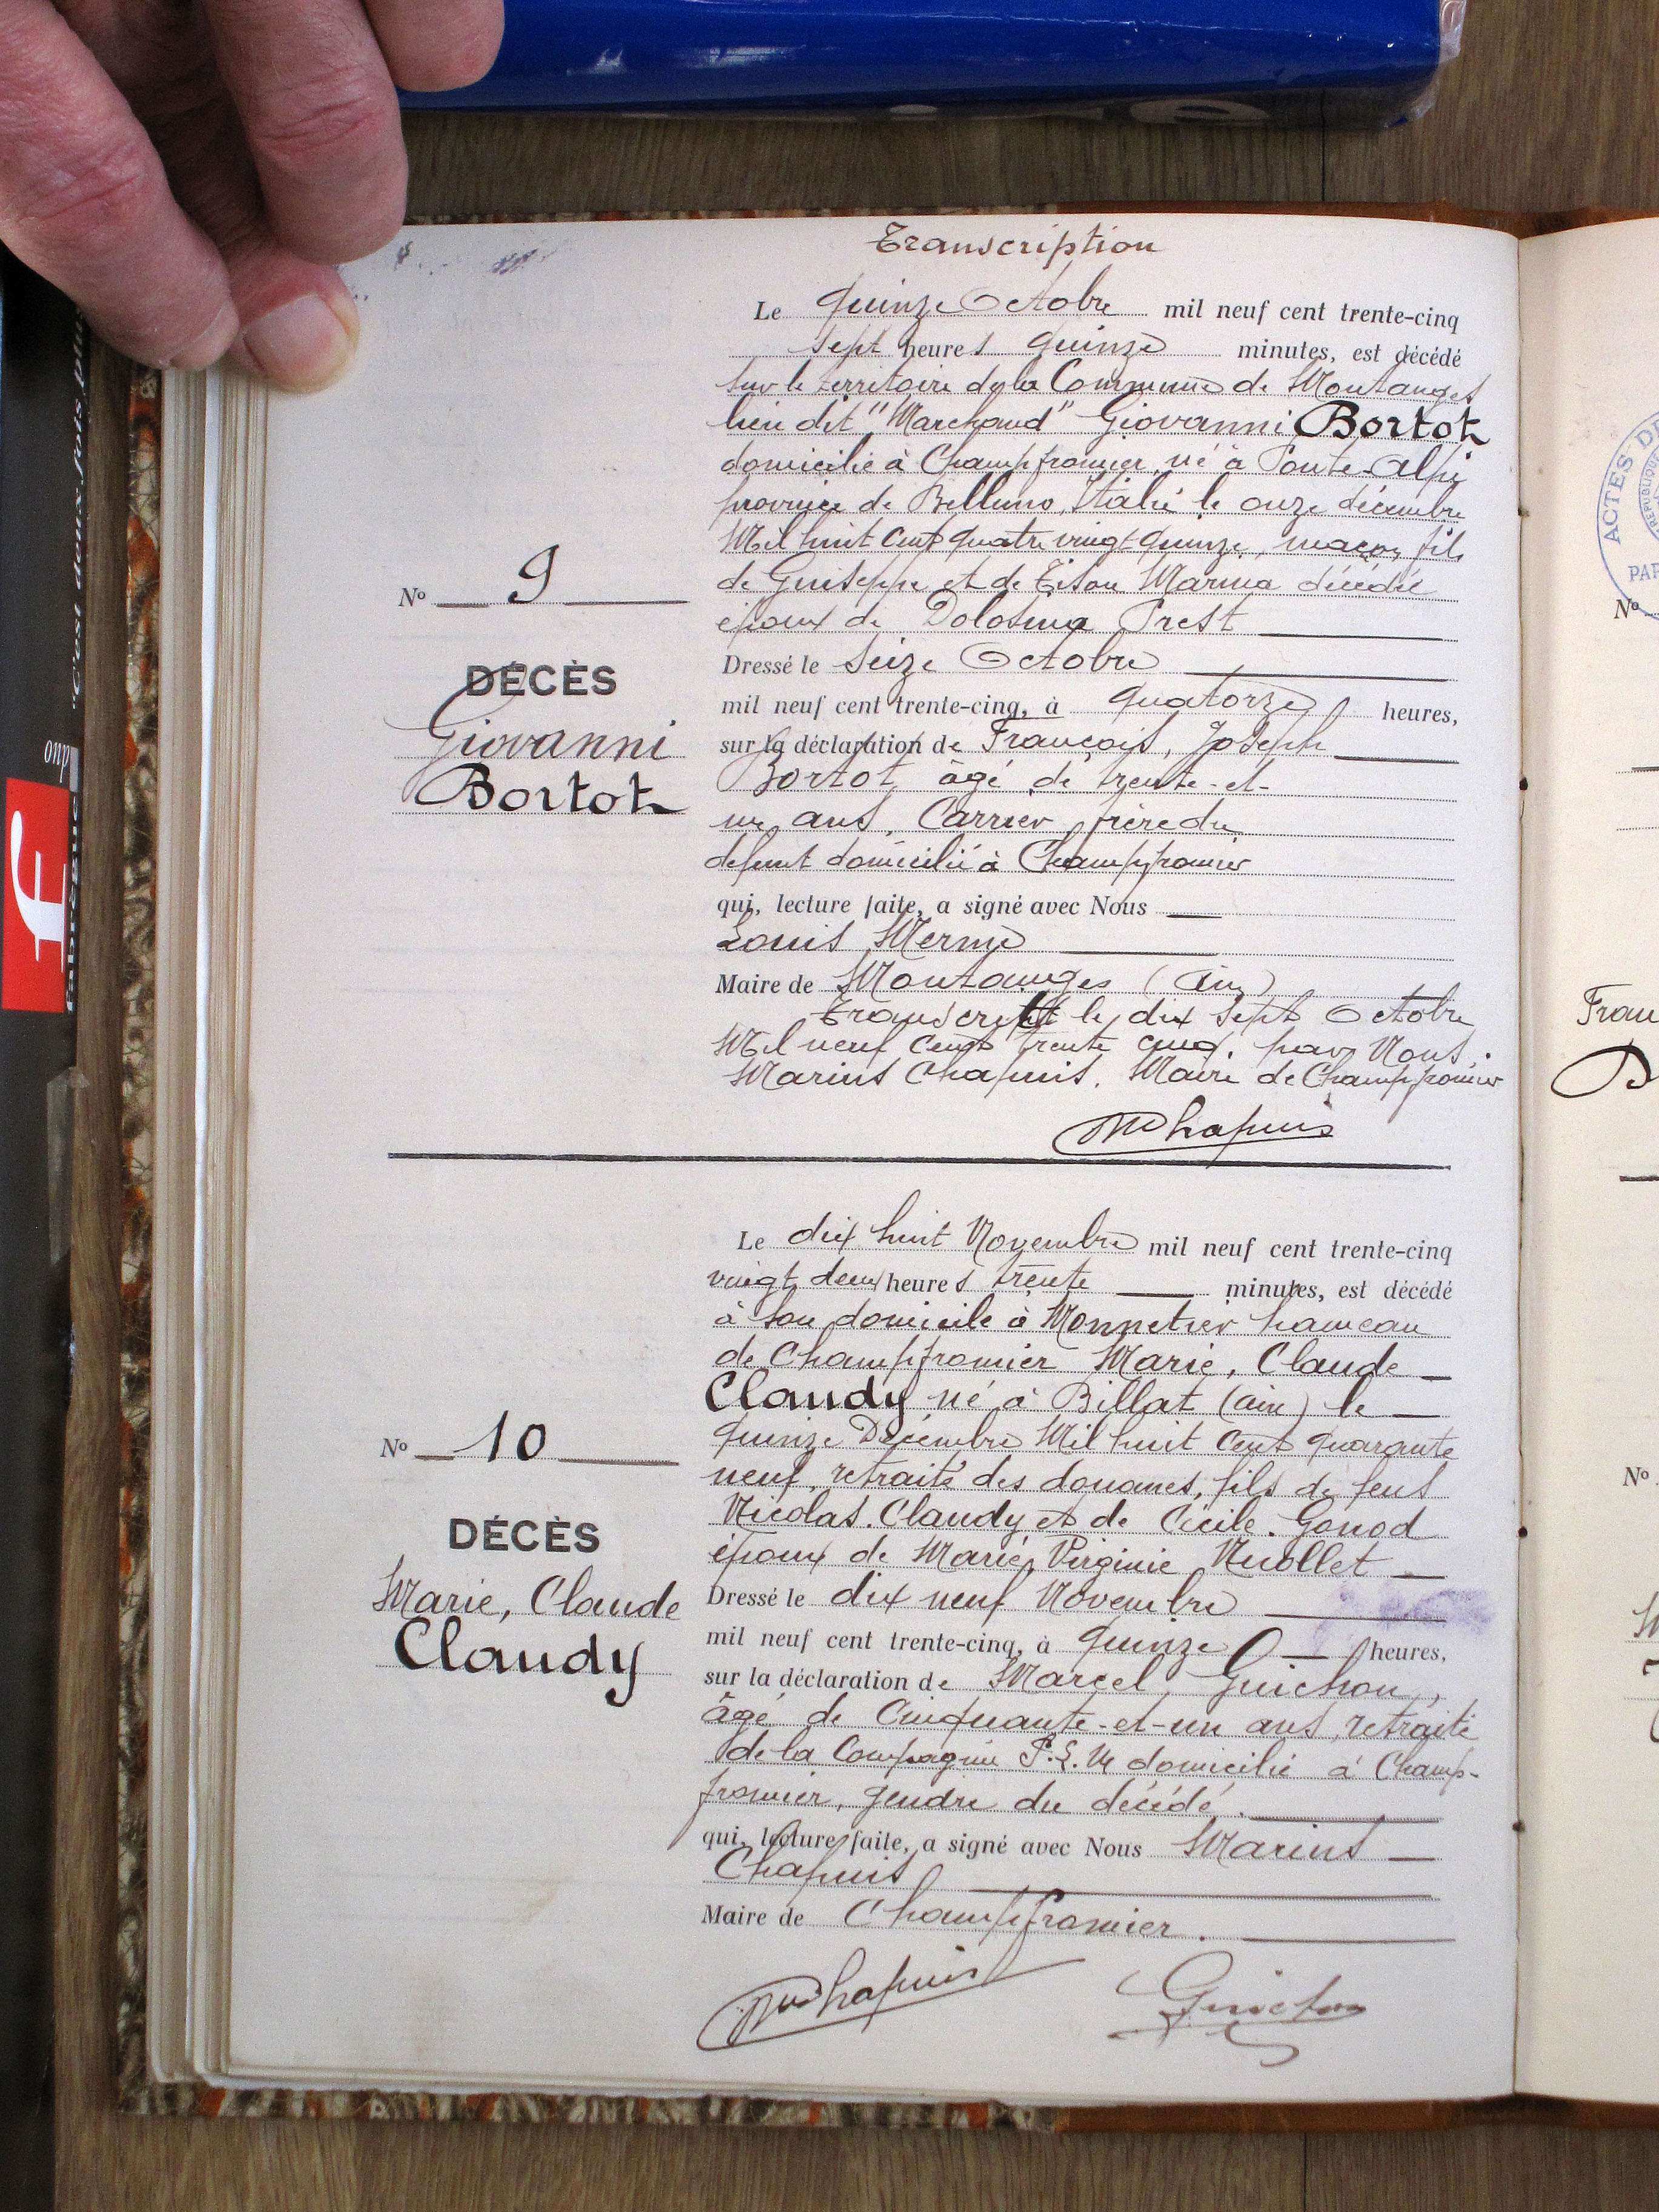 Transcription
Le quinze Octobre mil neuf cent trente-cinq
sept heures quinze minutes, est décédé
sur le territoire de la Commune de Montanges
lieu dit "Marchaud" Giovanni Bortot
domicilié à Champfromier, né à Ponte-Alpi
province de Belluno, Italie le onze décembre
Mil huit cent quatre vingt quinze, maçon, fils
de Guiseppe et de Tison Marina décédée
époux de Dolosina Prest
Dressé le Seize Octobre
mil neuf cent trente-cinq, à quatorze heures,
sur la déclaration de François, Joseph
Bortot, âgé de trente-et-
un ans, Carrier, frère du
défunt domicilié à Champfromier
qui, lecture faite, a signé avec Nous
Louis Mermet
Maire de Montanges (Ain)
Transcrit le dix sept Octobre
Mil neuf cent trente cinq. par Nous.
Marius Chapuis. Maire de Champfromier
MChapuis
No 9
DÉCÈS
Giovanni
Bortot
Le dix huit Novembre mil neuf cent trente-cinq
vingt deux heures trente minutes, est décédé
à son domicile à Monnetier hameau
de Champfromier Marie, Claude
Claudy né à Billiat (ain) le
quinze Décembre Mil huit cent quarante
neuf, retraité des douanes, fils de feus
Nicolas. Claudy et de Cécile. Gonod
époux de Marie, Virginie Nicollet
Dressé le dix neuf Novembre
mil neuf cent trente-cinq, à quinze heures,
sur la déclaration de Marcel, Guichon,
âgé de Cinquante-et-un ans, retraité
de la Compagnie P.L.M domicilié à Champ-
fromier, gendre du décédé.
qui, lecture faite, a signé avec Nous Marius
Chapuis
Maire de Champfromier.
MChapuis
Guichon
No 10
DÉCÈS
Marie, Claude
Claudy
ACTES
No
Fran
No